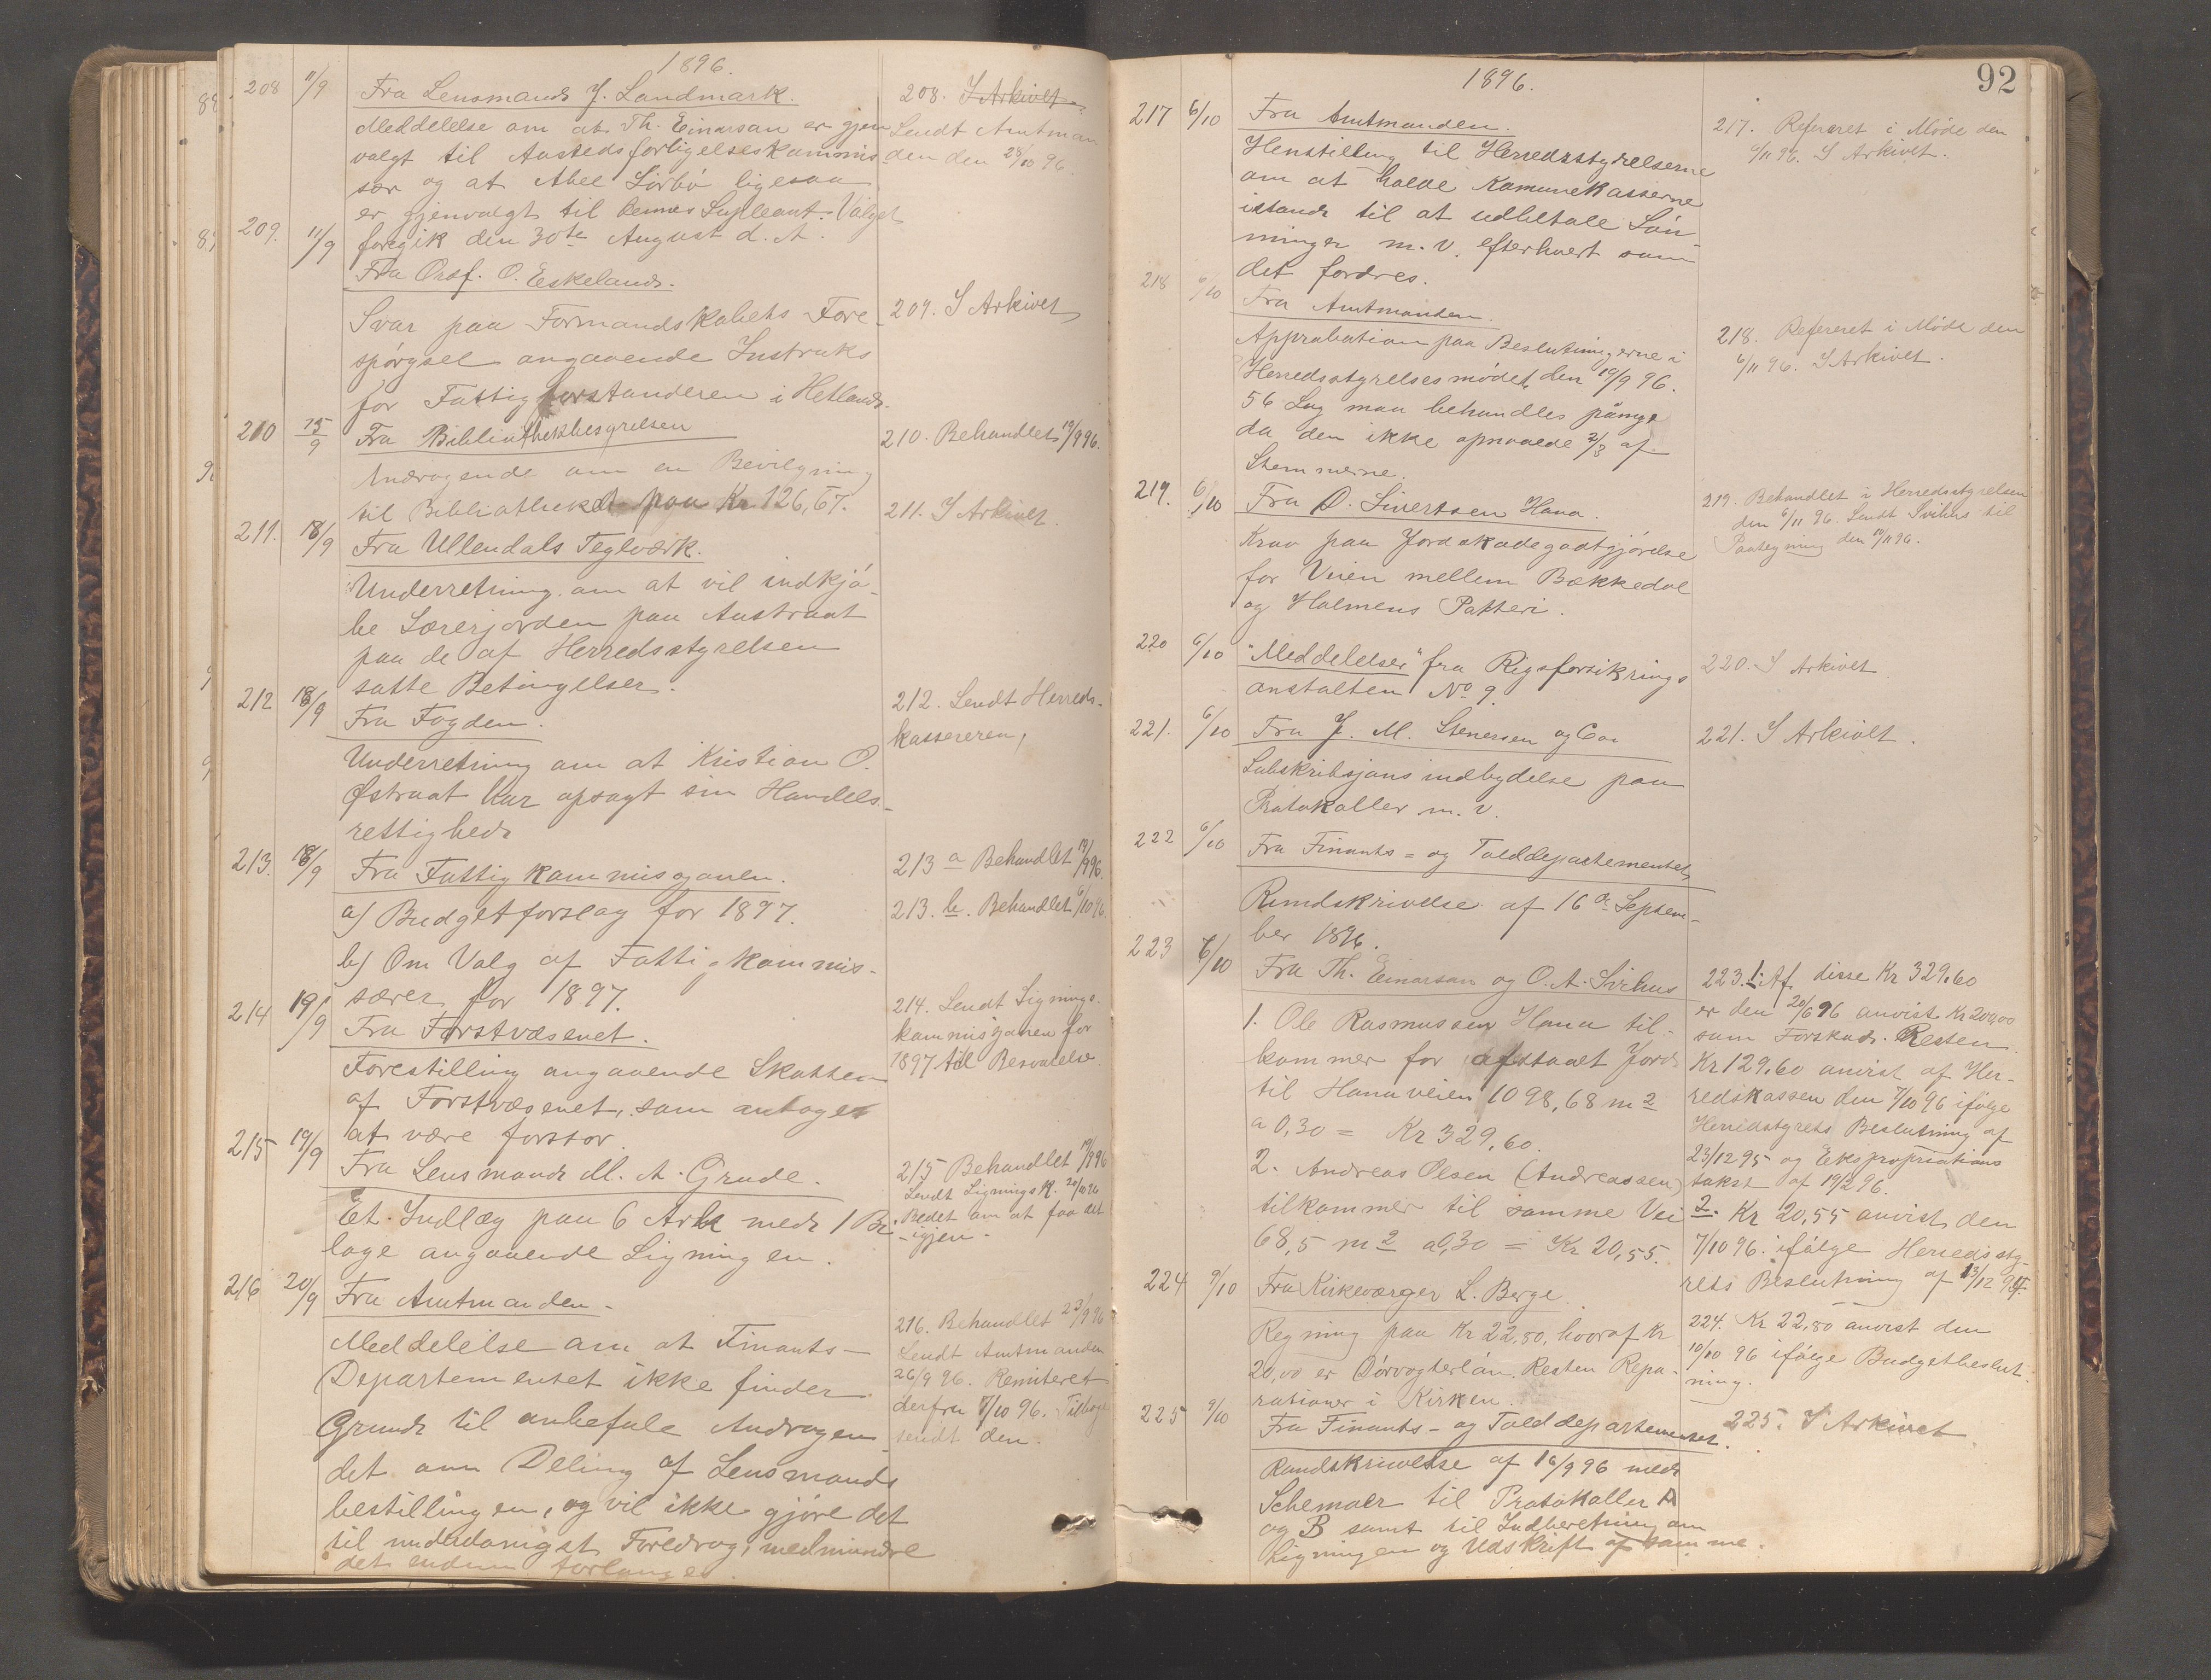 1896.
208 11/9 Fra Lensmand J. Landmark.
Meddelelse om at Th. Einarsen er gjen
valgt til Aastedsforligelseskommis
sær og at Abel Sörbö ligesaa
er gjenvalgt til Supleant. Valget
foregik den 30te August d. A.
208. I Arkivet
Sendt Amtman
den den 28/10 96.
209. 11/9 Fra O. Eskeland.
Svar paa Formandskabets Fore-
spörgsel angaaende Instruks
for Fattigforstanderen i Hetland.
209. I Arkivet
210 15/9 Fra Bibliothekbesyrelsen
Andragende om en Bevilgning
til Bibliotheket paa Kr 126,67.
210. Behandlet 19/9 96.
211. 18/9 Fra Ullendals Teglværk.
Underretning om at vil indkjö-
be Lærerjorden paa Austraat
paa de af Herredsstyrelsen
satte Betingelser.
211. I Arkivet.
212 18/9 Fra Fogden.
Underretning om at Kristian O.
Østraat har opsagt sin Handels-
rettighed
212. Sendt Herreds-
kassereren,
213. 18/9 Fra Fattigkommisjonen.
a) Budgetforslag for 1897.
b) Om Valg af Fattigkommis-
særer for 1897.
213 a Behandlet 19/9 96.
213. b. Behandlet 6/10 96
214 19/9 Fra Forstvæsenet.
Forestilling angaaende Skatten
af Forstvæsenet, som antages
at være forstor.
214. Sendt Lignings-
kommisjonen for
1897 til Besvarelse.
215 19/9 Fra Lensmand M. A. Grude.
Et Indlæg paa 6 Ark med 1 Bi-
lage angaaende Ligningen.
215 Behandlet 19/9 96
Sendt Lignings K. 20/10 96
Bedet om at faa det
igjen-
216 20/9 Fra Amtmanden-
Meddelelse om at Finants-
Departementet ikke finder
Grund til anbefale Andragen-
det om Deling af Lensmands
bestillingen, og vil ikke gjöre det
til underdanigst Foredrag, medmindre
det endnu forlanges.
216. Behandlet 23/9 96
Sendt Amtmanden
26/9 96. Remiteret
derfra 7/10 96. Tilbage
sendt den.
92
1896.
217 6/10 Fra Amtmanden.
Henstilling til Herredsstyrelserne
om at holde Kommunekasserne
istand til at udbetale Lön-
ninger m. v. efterhvert som
det fordres.
217. Refereret i Möde den
6/11 96. I Arkivet.
218 6/10 Fra Amtmanden.
Approbation paa Beslutningerne i
Herredsstyrelsesmödet den 19/9 96.
56 Sag maa behandles
da den ikke opnaaede 2/3 af
Stemmerne.
218. Refereret i Möde den
6/11 96. I Arkivet.
219. 6/10 Fra O. Sivertsen Hana.
Krav paa Jordskadegodtgjörelse
for Veien mellem Bækkedal
og Holmens Potteri.
219. Behandlet i Herredsstyrelsen
den 6/11 96. Sendt Svihus til
Paategning den 10/11 96.
220 6/10 "Meddelelser" fra Rigsforsikrings
anstalten No 9.
220. I Arkivet
221. 6/10 Fra J. M. Stenersen og Co
Subskribsjons indbydelse paa
Protokoller m. v.
221. I Arkivet.
222 6/10 Fra Finants- og Tolddepartementet
Rundskrivelse af 16de Septem-
ber 1896.
223 6/10 Fra Th. Einarsen og O. A. Svihus
1. Ole Rasmussen Hana til-
kommer for afstaaet Jord
til Hanaveien 1098,68 m2
a 0,30 = Kr 329,60.
2. Andreas Olsen (Andreassen)
tilkommer til samme Vei
68,5 m2 a 0,30 = Kr 20,55.
223. 1. Af disse Kr 329,60
er den 20/6 96 anvist Kr 200,00
som Forskud. Resten
Kr 129,60 anvist af Her-
redskassen den 7/10 96 ifölge
Herredstyrets Beslutning af
23/12 95 og Ekspropriations
takst af 19/2 96.
2. Kr 20,55 anvist den
7/10 96. ifölge Herredssty-
rets Beslutning af 23/12 95.
224 9/10 Fra Kirkeværger L. Berge.
Regning paa Kr 22,80, hvoraf Kr
20,00 er Dörvogterlön. Resten Repa-
rationer i Kirken.
224. Kr 22,80 anvist den
10/10 96 ifölge Budgetbeslut-
ning.
225 9/10 Fra Finants- og Tolddepartementet.
Rundskrivelse af 16/9 96 med
Schemaer til Protokoller A
og B samt til Indberetning om
Ligningen og Udskrift af samme.
225. I Arkivet